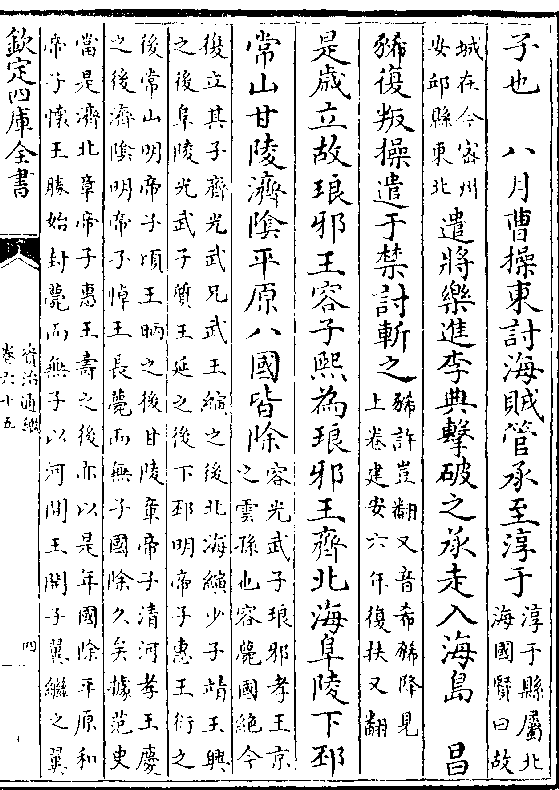 子也　八月曹操東討海賊管承至淳于淳于縣屬北海國賢曰故
城在今宻州安邱縣東北遣將樂進李典擊破之承走入海島　昌
豨復叛操遣于禁討斬之豨許豈翻又音希豨降見上卷建安六年復扶又翻
是歳立故琅邪王容子熙為琅邪王齊北海阜陵下邳
常山甘陵濟隂平原八國皆除容光武子琅邪孝王京之雲孫也容薨國絶今
復立其子齊光武兄武王縯之後北海縯少子靖王興
之後阜陵光武子質王延之後下邳明帝子惠王衍之
後常山明帝子頃王昞之後甘陵章帝子清河孝王慶
之後濟隂明帝子悼王長薨而無子國除久矣據范史
當是濟北章帝子惠王壽之後亦以是年國除平原和
帝子懐王勝始封薨而無子以河間王開子翼繼之翼
欽定四庫全書
資治通鑑
卷六十五
四